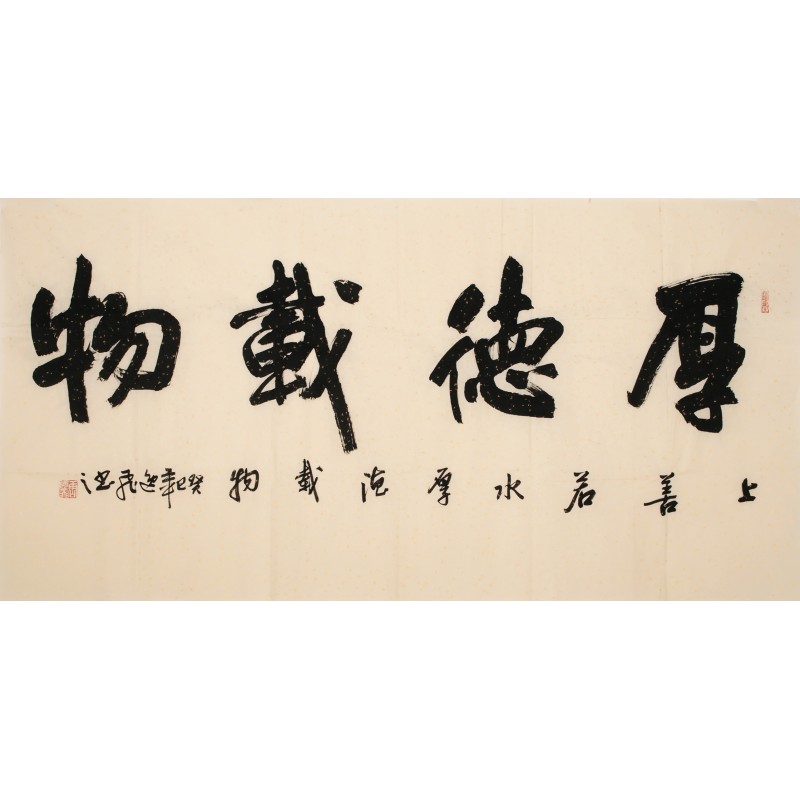 厚德载物
上善若水厚德载物癸巳年